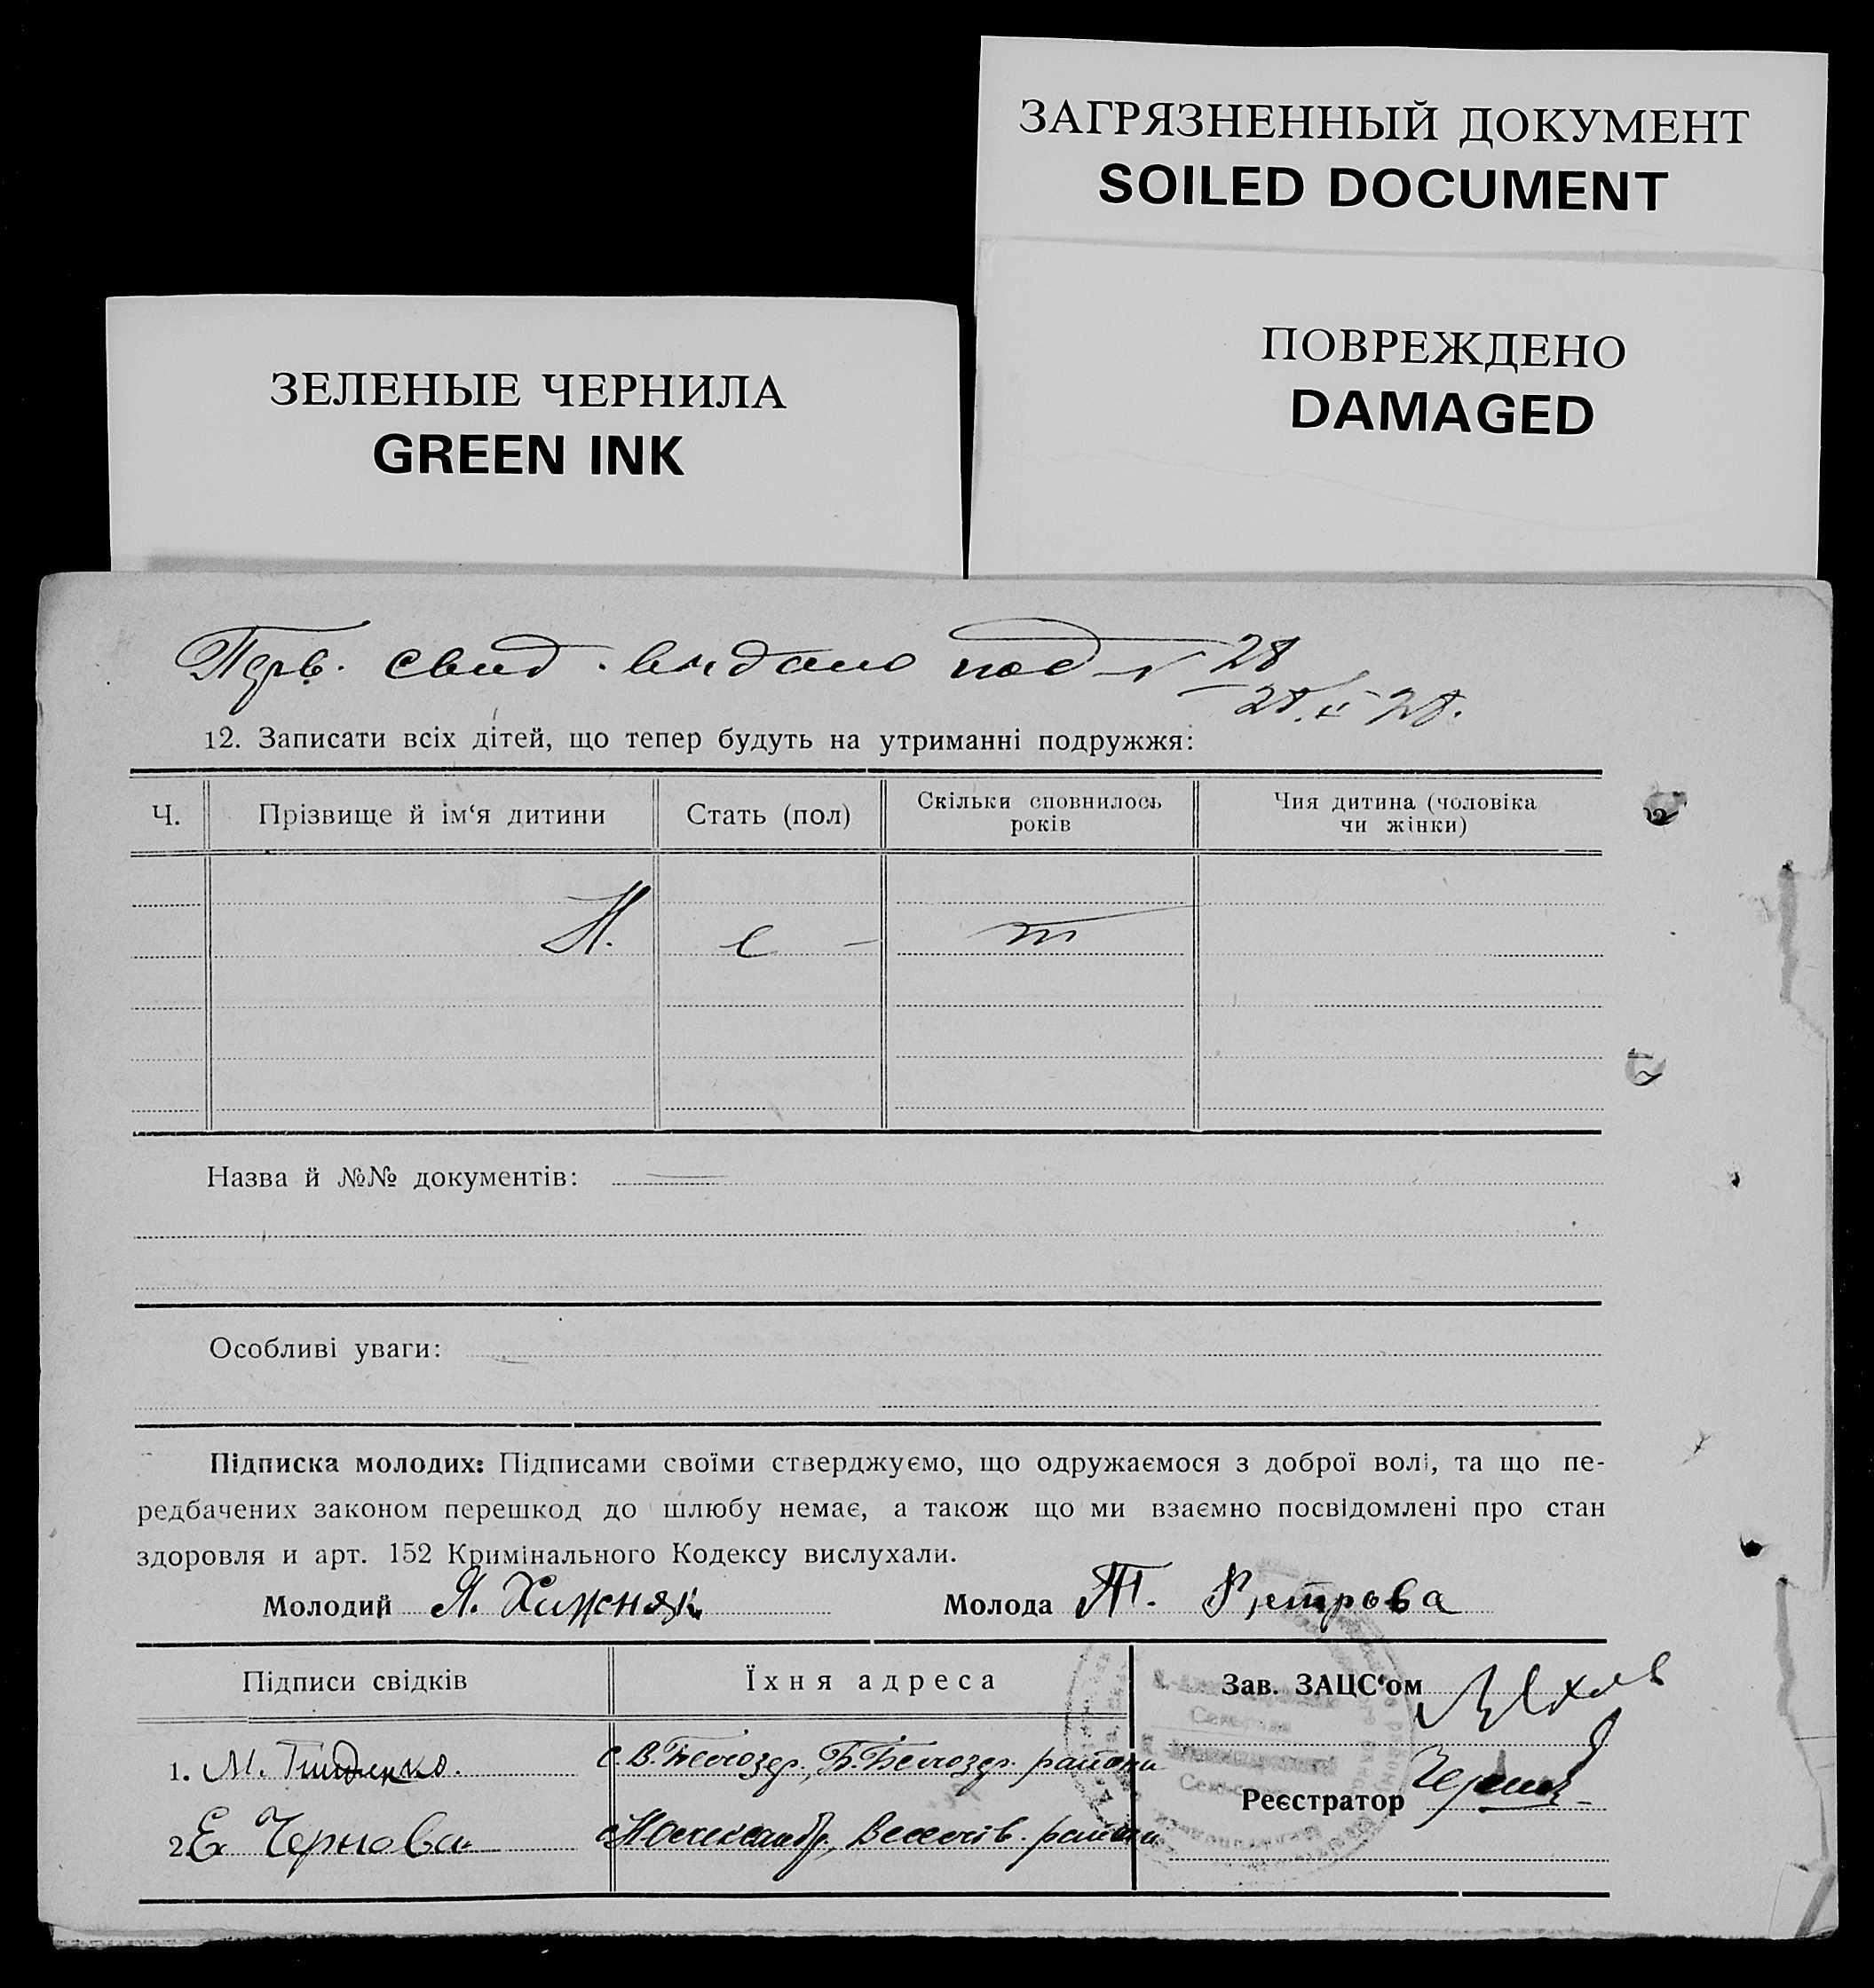 ЗАГРЯЗНЕННЫЙ ДОКУМЕНТ
SOILED DOCUMENT
ПОВРЕЖДЕНО
DAMAGED
ЗЕЛЕНЫЕ ЧЕРНИЛА
GREEN INK
свид. выдано под № 28
12. Записати всіх дітей, що тепер будуть на утриманні подружжя:
Ч. Прізвище й ім‘я дитини Стать (пол) Скільки сповнилось років Чия дитина (чоловіка чи жінки)
Н. е - т
Назва й №№ документів:
Особливі уваги:
Підписка молодих: Підписами своїми стверджуємо, що одружаємося з доброї волі, та що пе-
редбачених законом перешкод до шлюбу немає, а також що ми взаємно посвідомлені про стан
здоровля и арт. 152 Кримінального Кодексу вислухали.
Молодий Я. Хижняк Молода Т. Петрова
Підписи свідків Їхня адреса Зав. ЗАЦС‘ом
1. М. с. В. Белозер., В. Белозер. района
Реєстратор
2. Е. Чернова с. Н Александр., района